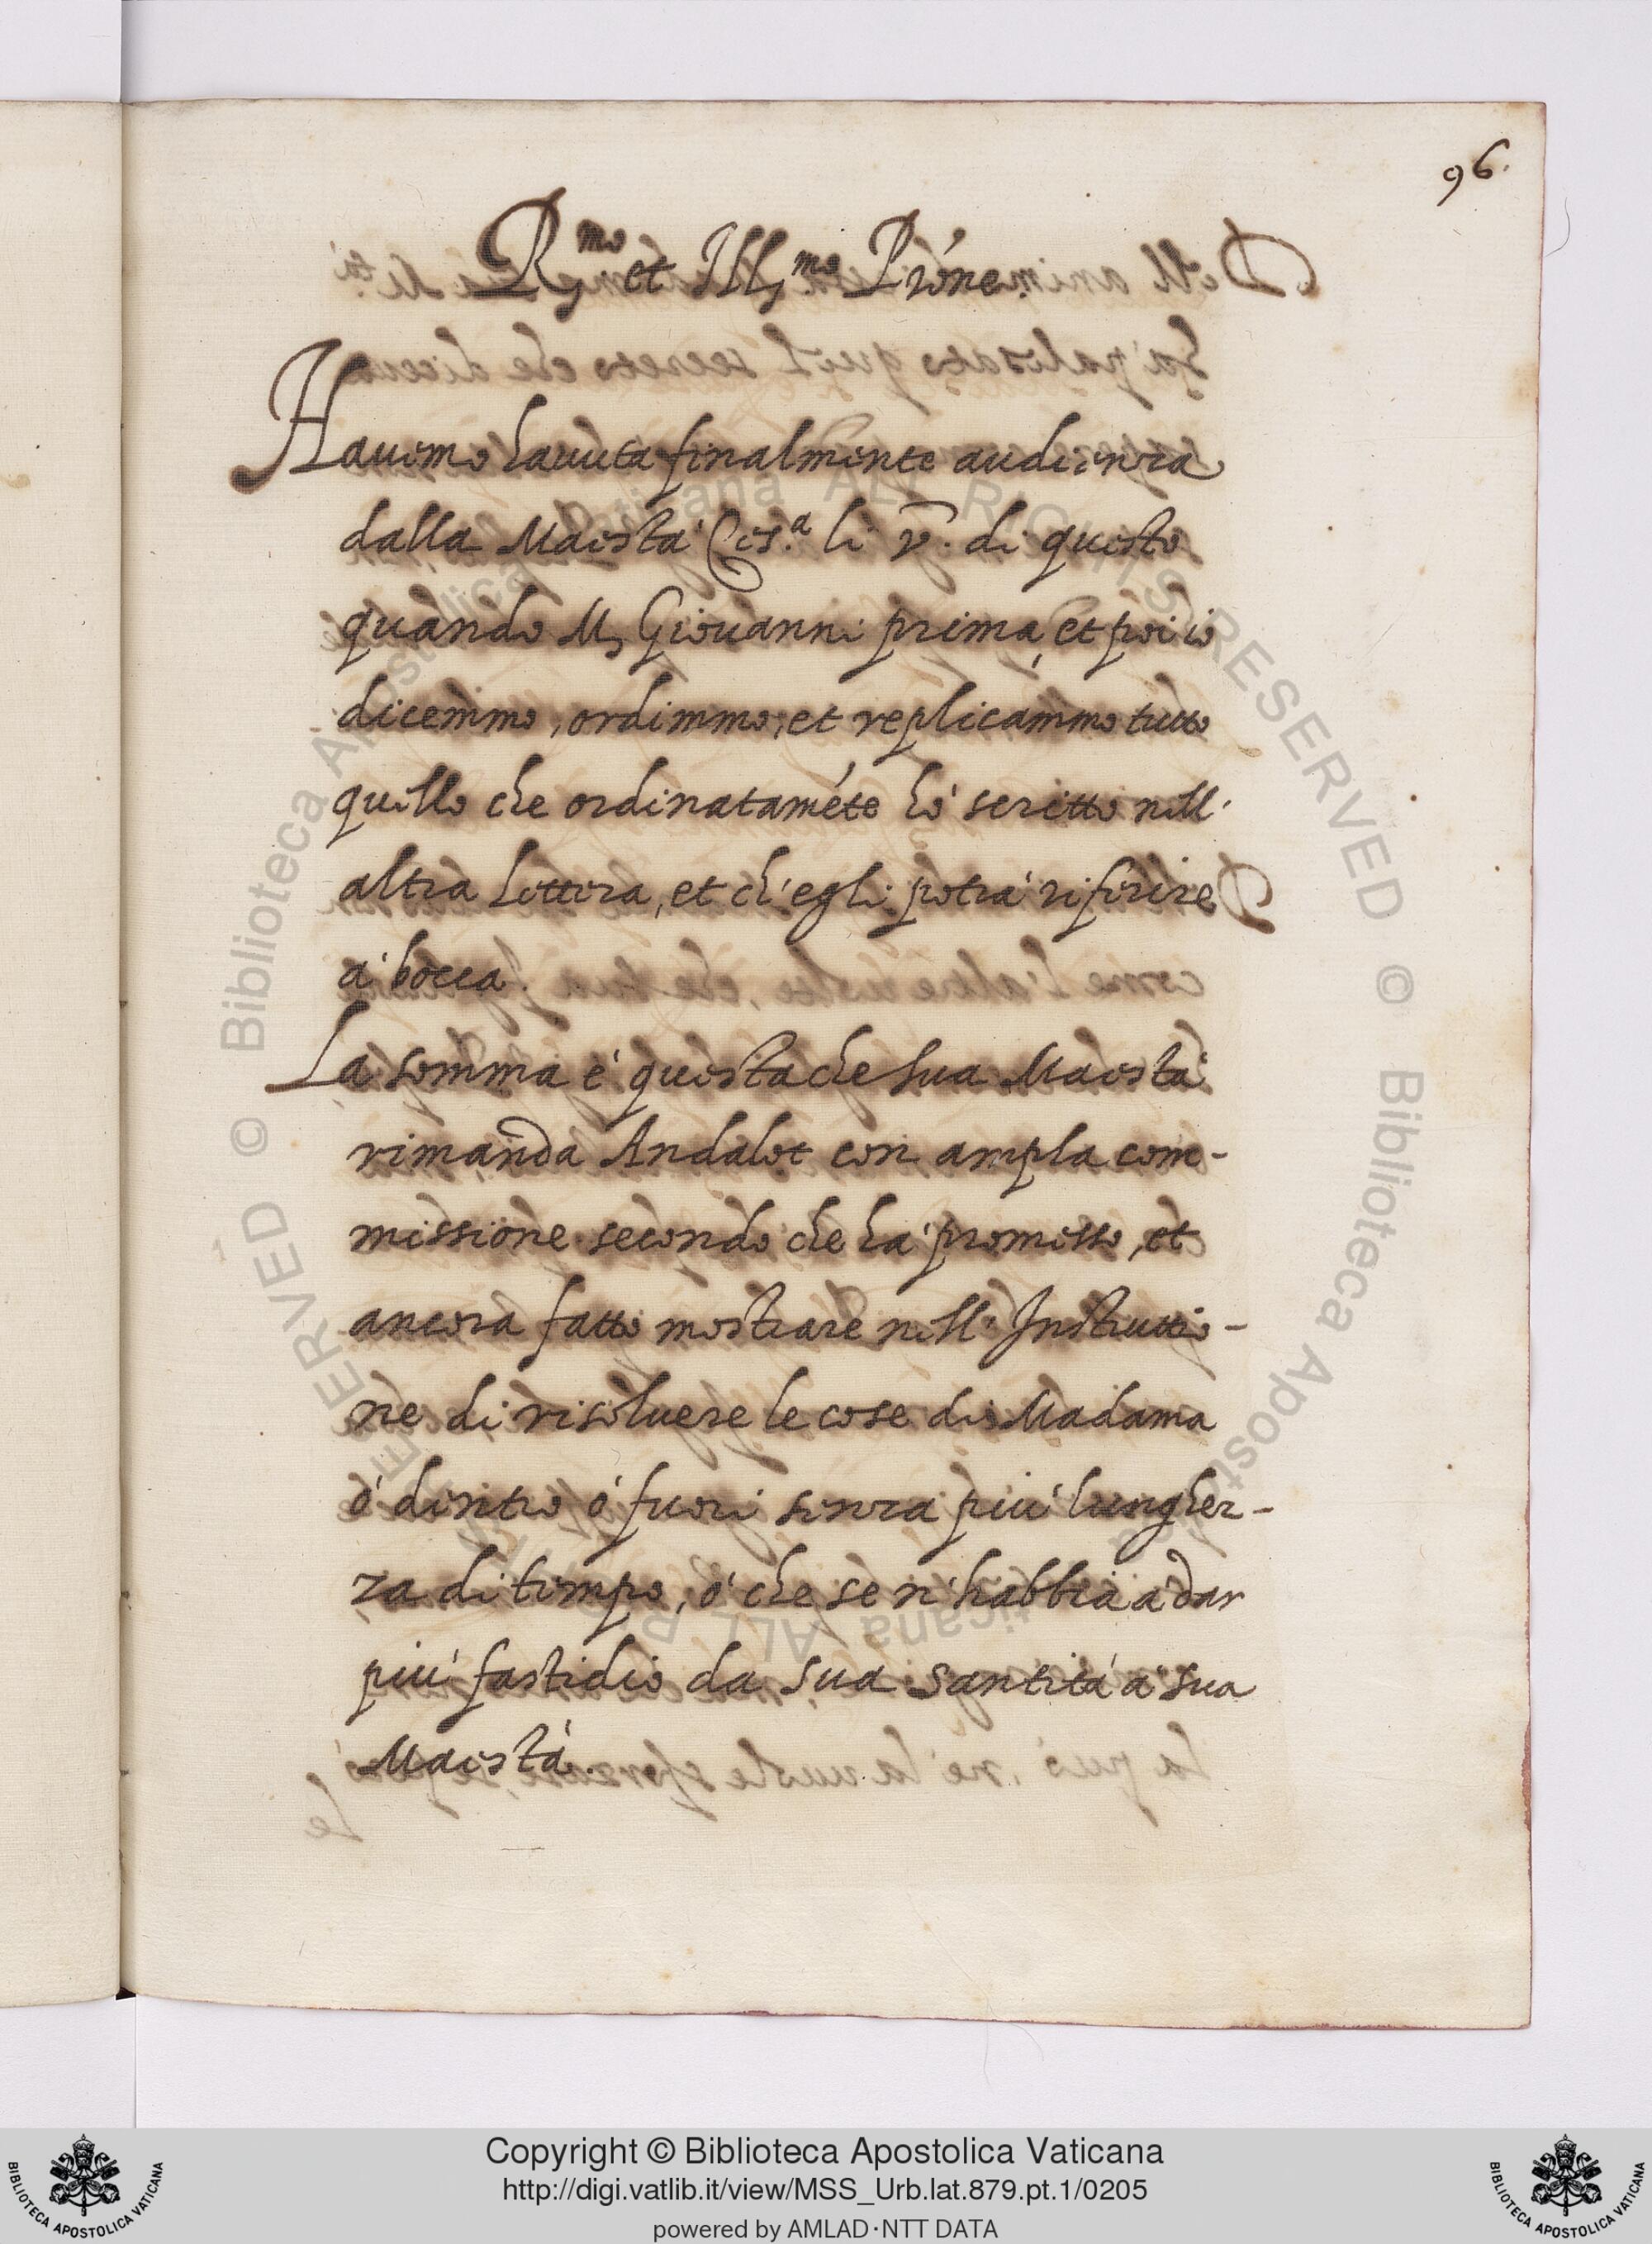 96.
R.mo et Ill.mo P'rone.
Hauemo hauuta finalmente audienza
dalla Maestà Ces.a li v. di questo
quando M. Giouanni prima, et poi io
dicemmo, ordimmo, et replicammo tutto
quello che ordinataméte hò scritto nell'
altra lettera, et ch'egli potrà riferire
à bocca.
La somma è questa che sua Maestà
rimanda Andalot con ampla com-
missione secondo che hà promesso, et
ancora fatto mostrare nell' Instruttio-
ne di risoluere le cose di Madama
ò dentro ò fuori senza più lunghez-
za di tempo, ò che se n'habbia à dar
più fastidio da sua Santità à sua
Maestà.
© Biblioteca Apostolica Vaticana ALL RIGHTS RESERVED © Biblioteca Apostolica Vaticana ALL RIGHTS RESERVED
Copyright © Biblioteca Apostolica Vaticana
http://digi.vatlib.it/view/MSS_Urb.lat.879.pt.1/0205
powered by AMLAD·NTT DATA
BIBLIOTECA APOSTOLICA VATICANA
BIBLIOTECA APOSTOLICA VATICANA